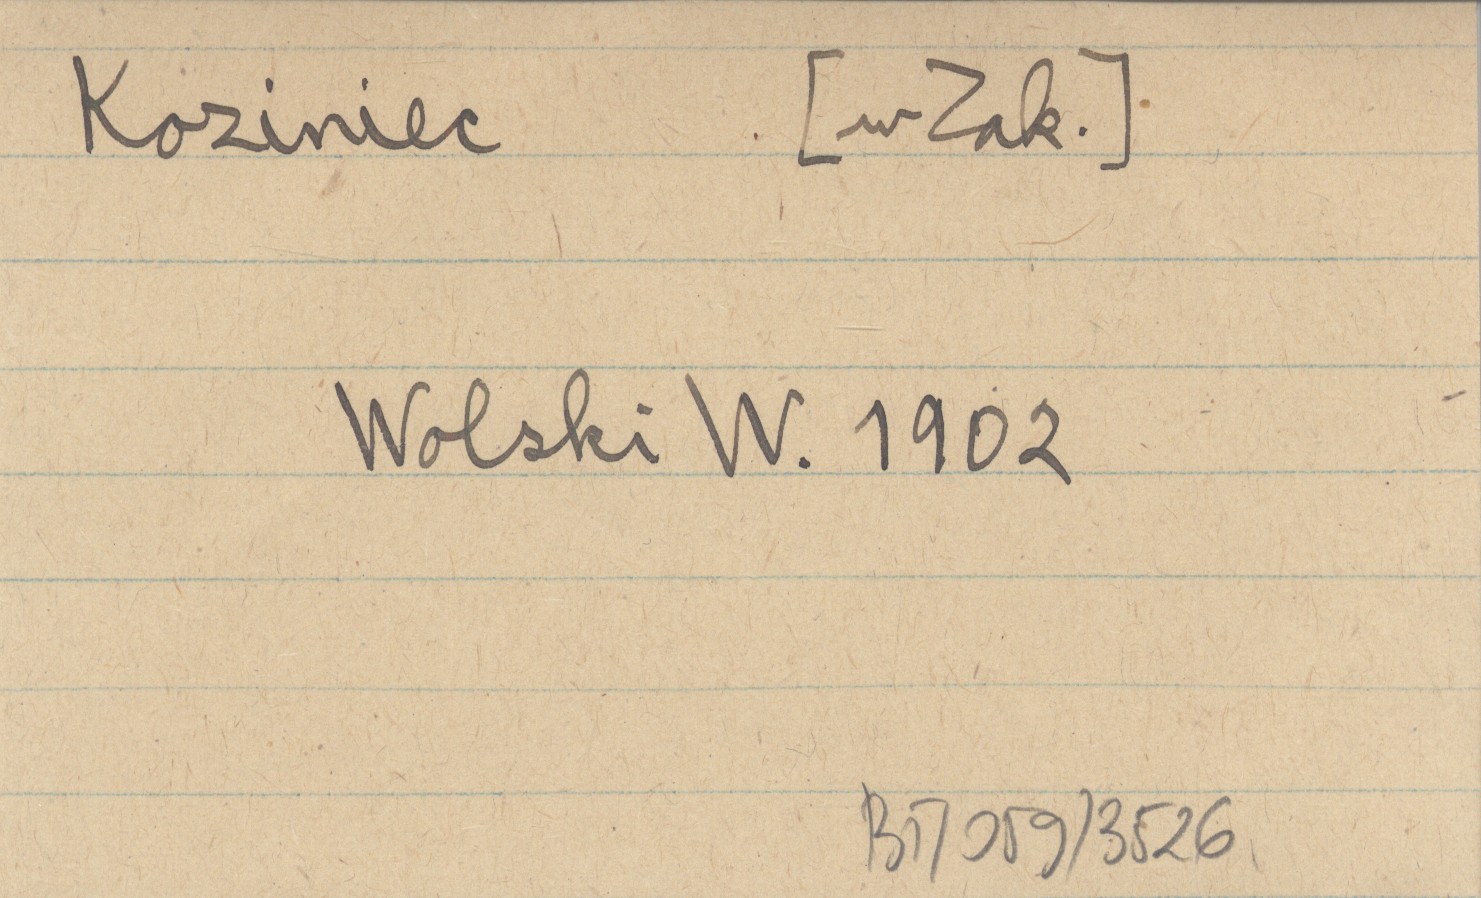 Koziniec [w Zak.]
Wolski W. 1902
BT/059/3526